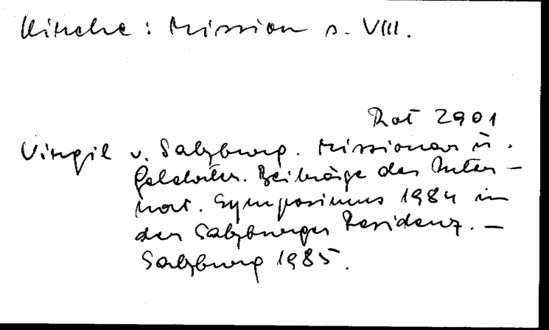 Kirche: Mission s. VIII.
Rot 2901
Virgil v. Salzburg. Missionar u.
Gelehrter. Beiträge des Inter-
nat. Symposiums 1984 in
der Salzburger Residenz. -
Salzburg 1985.